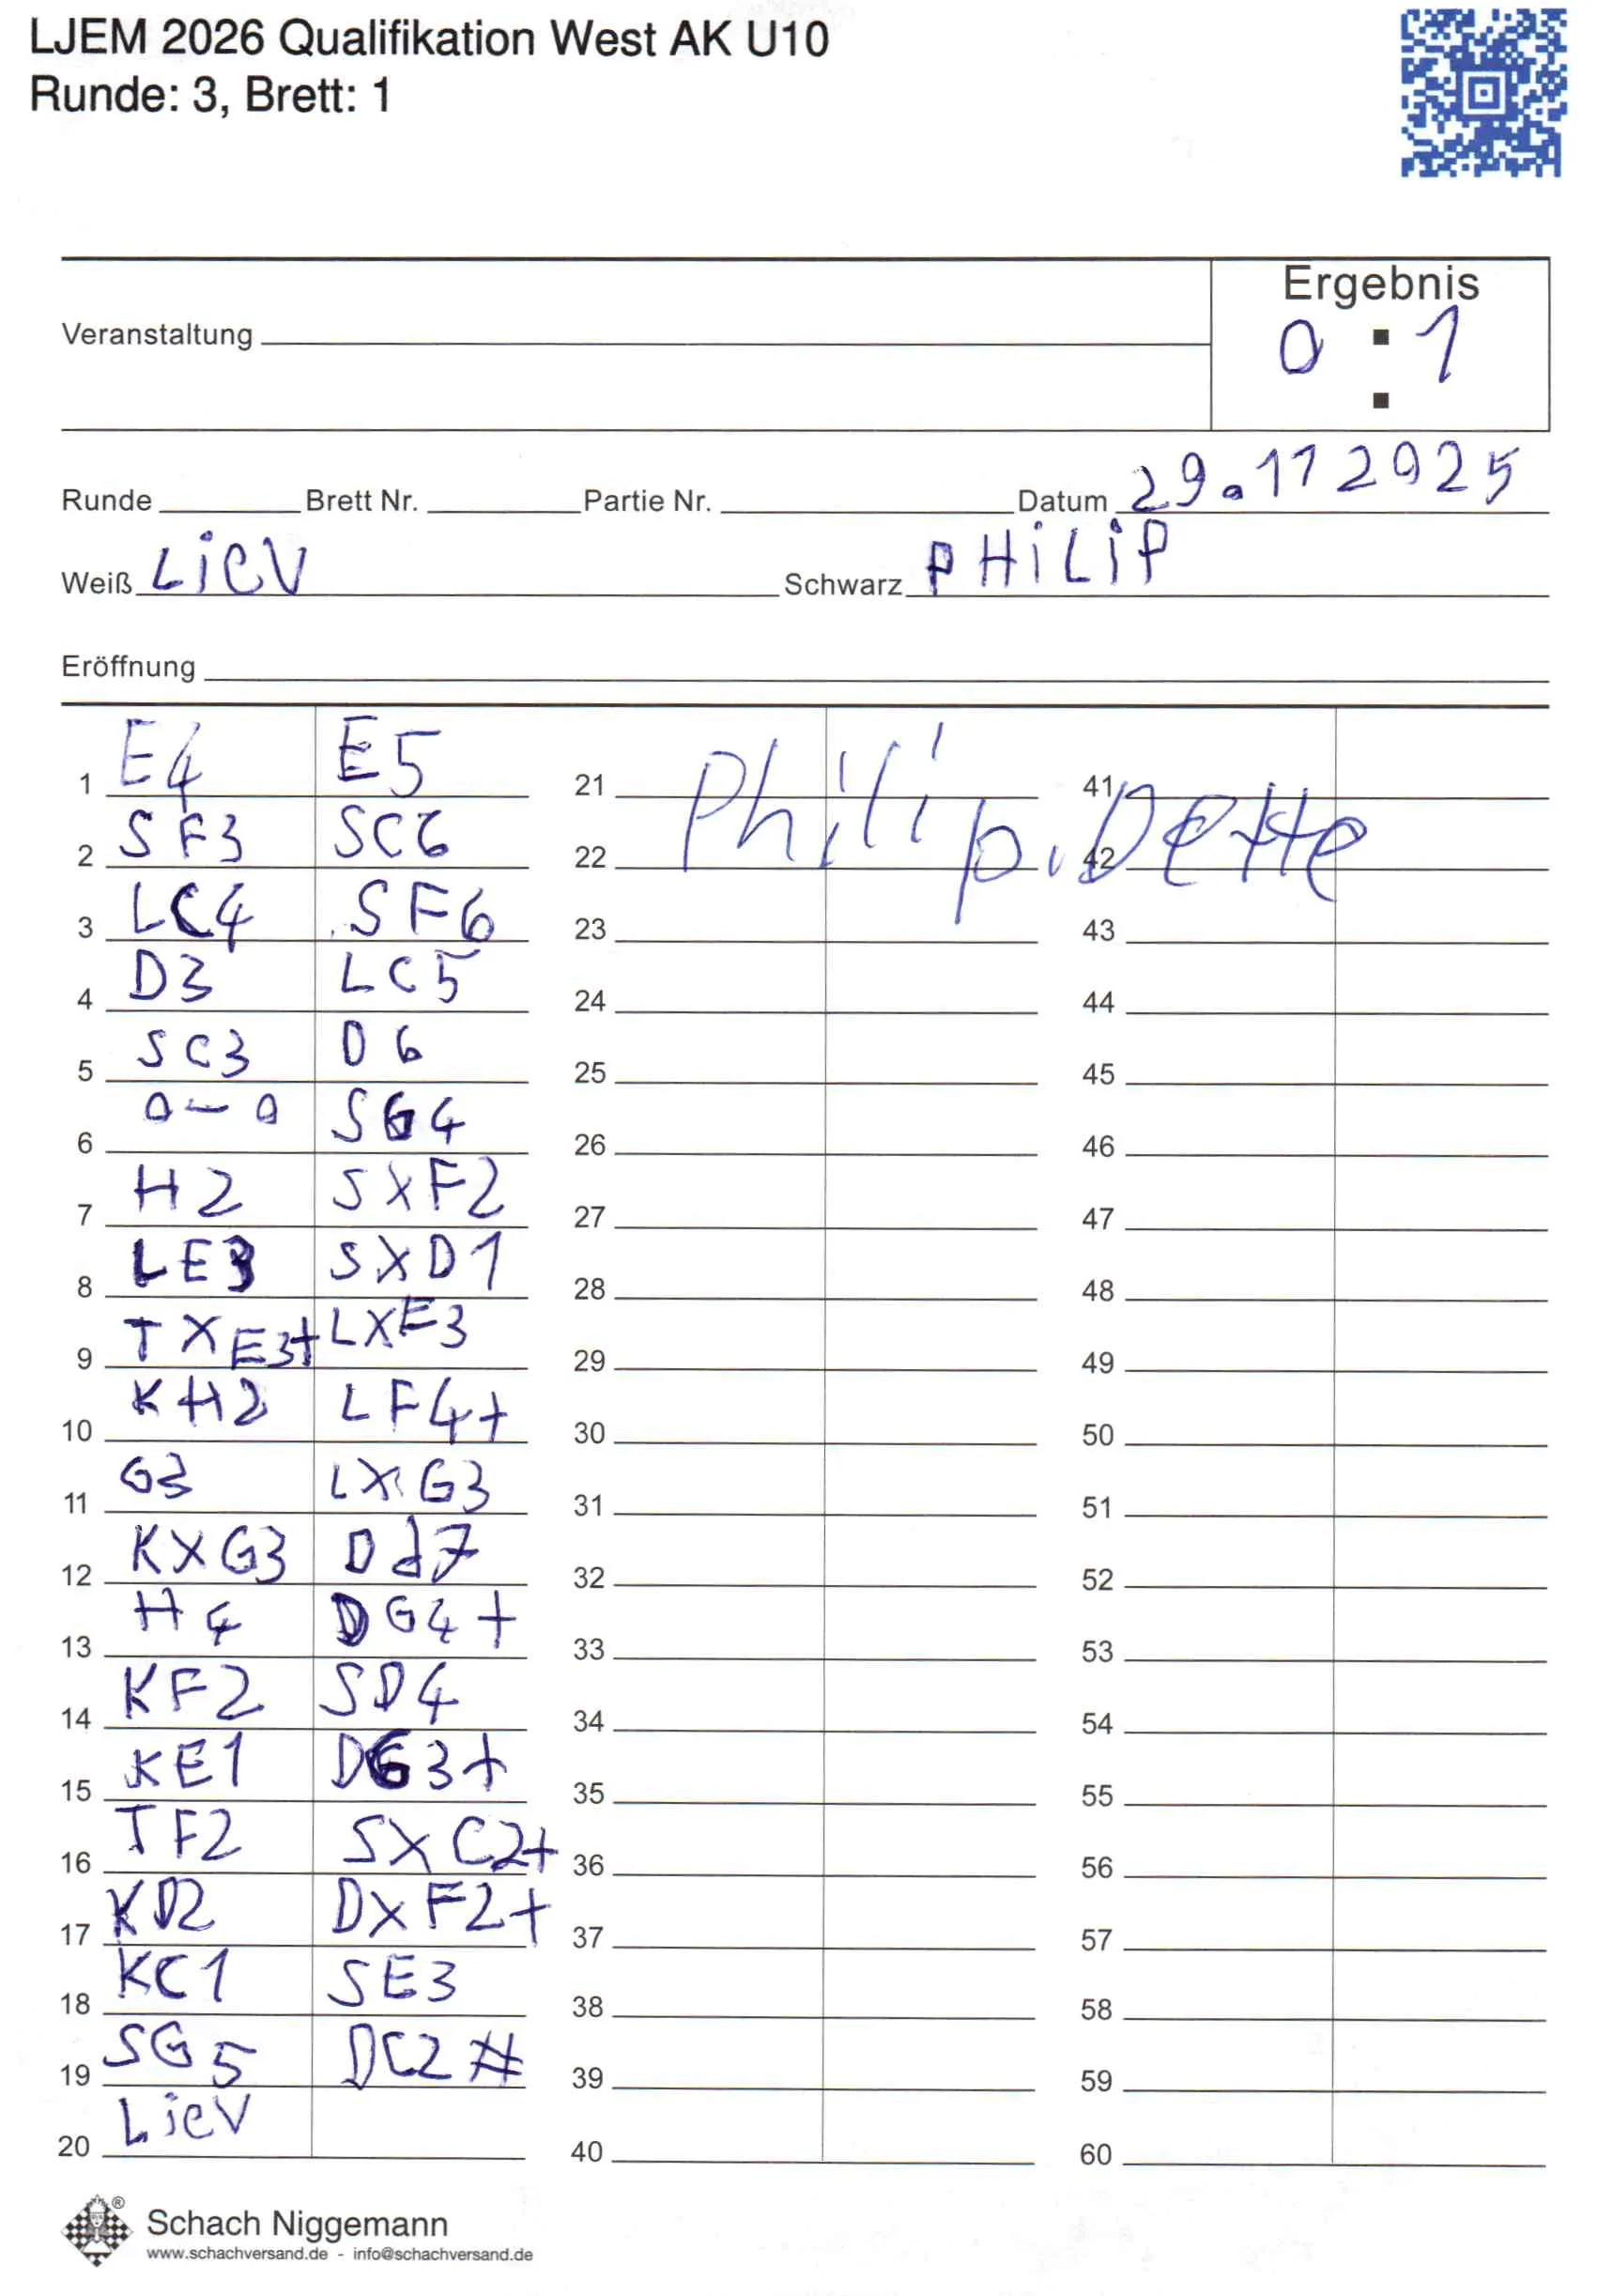 LJEM 2026 Qualifikation West AK U10
Runde: 3, Brett: 1
Ergebnis
0 : 1
Veranstaltung
Runde Brett Nr. Partie Nr. Datum 29.11 2025
Weiß LiEV Schwarz PHiLiP
Eröffnung
1 E4 E5
2 SF3 SC6
3 LC4 SF6
4 D3 LC5
5 SC3 D6
6 0-0 SG4
7 H2 SXF2
8 LE3 SXD1
9 TXE3+ LXE3
10 KH2 LF4+
11 G3 LXG3
12 KXG3 Dd7
13 H4 DG4+
14 KF2 SD4
15 KE1 DG3+
16 TF2 SXC2+
17 KD2 DXF2+
18 KC1 SE3
19 SG5 DC2#
20 Liev
21 Philip.Dette 41
22 42
23 43
24 44
25 45
26 46
27 47
28 48
29 49
30 50
31 51
32 52
33 53
34 54
35 55
36 56
37 57
38 58
39 59
40 60
Schach Niggemann
www.schachversand.de - info@schachversand.de